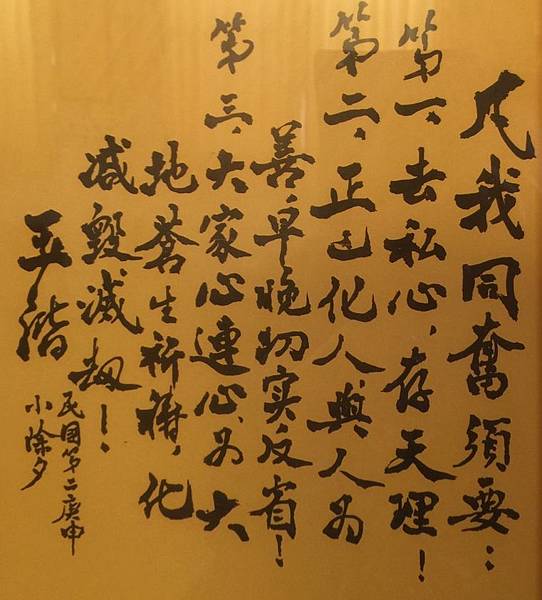 凡我同奮須要：
第一、去私心，存天理！
第二、正己化人、與人為
善、早晚切實反省！
第三、大家心連心，為大
地蒼生祈禱，化
減毀滅劫！
玉階
民國第二庚申
小除夕